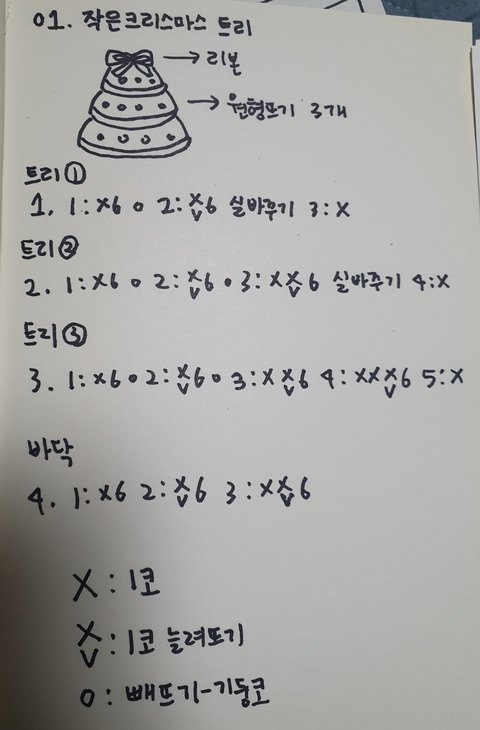 01. 작은크리스마스 트리
→ 리본
→ 원형뜨기 3개
트리①
1. 1: x6 o 2: x̬6 실바꾸기 3: x
트리②
2. 1: x6 o 2: x̬6 o 3: xx̬6 실바꾸기 4: x
트리③
3. 1: x6 o 2: x̬6 o 3: xx̬6 4: xxx̬6 5: x
바닥
4. 1: x6 2: x̬6 3: xx̬6
x : 1코
x̬ : 1코 늘려뜨기
o : 빼뜨기-기둥코